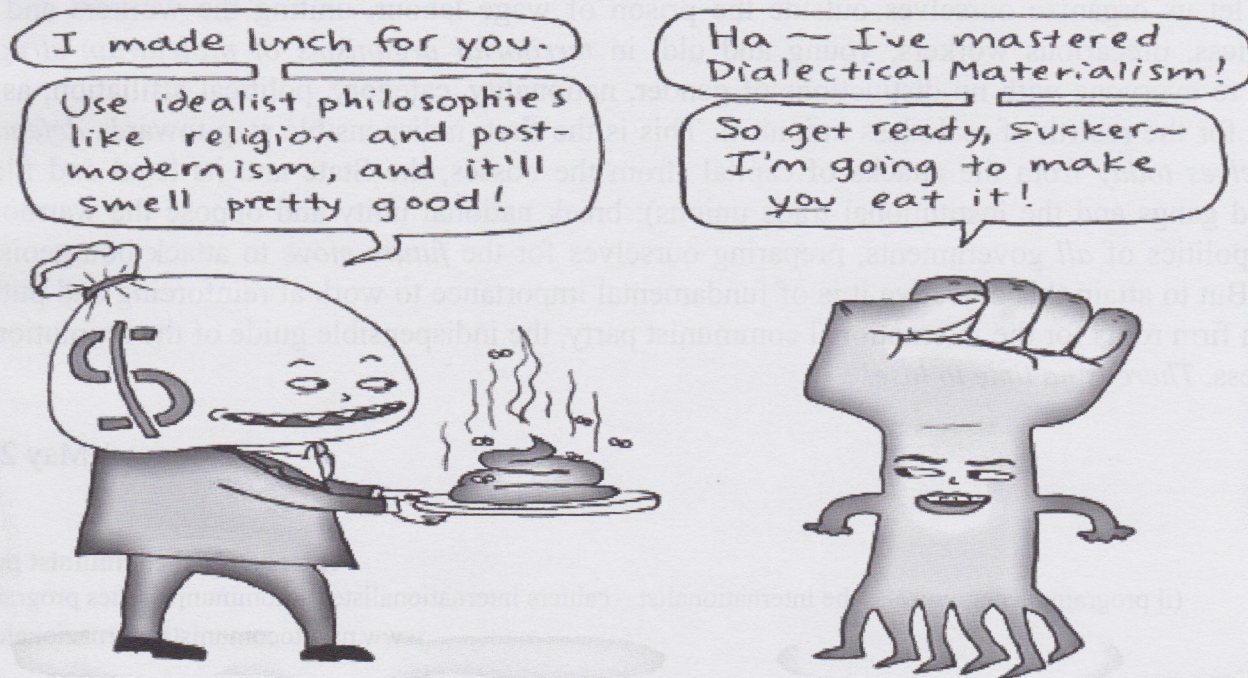 I made lunch for you.
Use idealist philosophies
like religion and post-
modernism, and it'll
smell pretty good!
Ha — I've mastered
Dialectical Materialism!
So get ready, sucker –
I'm going to make
you eat it!
$